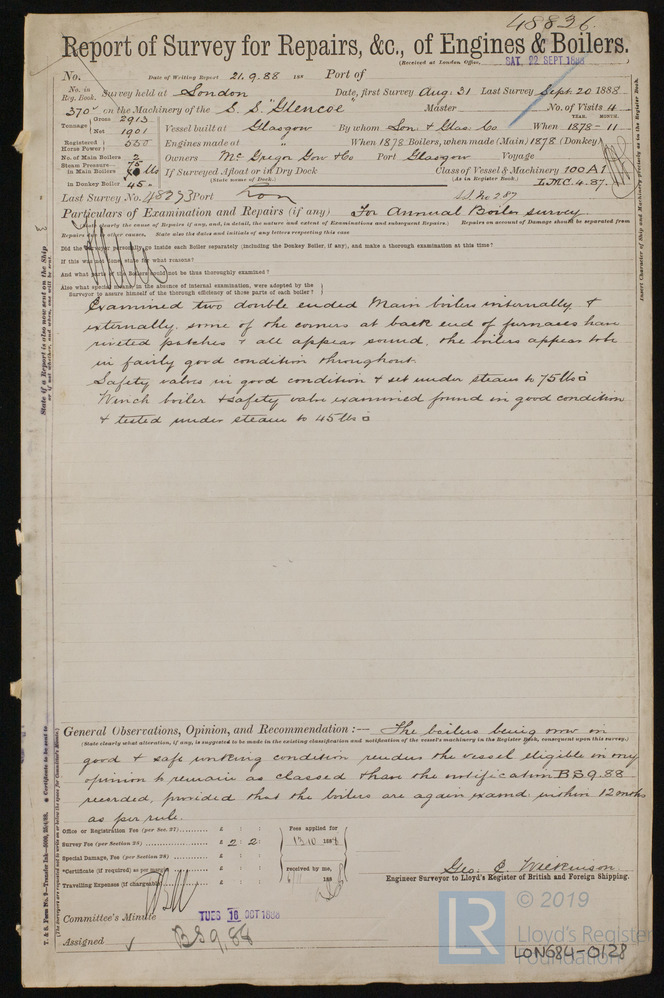 48896.
Report of Survey for Repairs, &c., of Engines & Boilers.
(Received at London Office, SAT. 22 SEPT 1888
No. Date of Writing Report 21.9.88 188 Port of
No. in Reg. Book. Survey held at London Date, first Survey Aug. 31 Last Survey Sept. 20 1888
370 on the Machinery of the S.S. "Glencoe" Master No. of Visits 4
Tonnage Gross 2913 Net 1901 Vessel built at Glasgow By whom Lon. & Glas. Co When 1878 - 11 YEAR. MONTH.
Registered Horse Power 550 Engines made at " When 1878 Boilers, when made (Main) 1878 (Donkey)
No. of Main Boilers 2 Owners Mc Gregor Gow & Co Port Glasgow Voyage
Steam Pressure in Main Boilers 75 lbs If Surveyed Afloat or in Dry Dock Class of Vessel & Machinery 100A1
(State name of Dock.) (As in Register Book.)
in Donkey Boiler 45 L.M.C. 4.87.
Last Survey No. 48773 Port Lon S.S. No 2 87
Particulars of Examination and Repairs (if any) For Annual Boiler survey
(State clearly the cause of Repairs if any, and, in detail, the nature and extent of Examinations and subsequent Repairs.) Repairs on account of Damage should be separated from
Repairs due to other causes. State also the dates and initials of any letters respecting this case
Did the Surveyor personally go inside each Boiler separately (including the Donkey Boiler, if any), and make a thorough examination at this time?
If this was not done, state for what reasons?
And what parts of the Boilers could not be thus thoroughly examined?
Also what special means, in the absence of internal examination, were adopted by the
Surveyor to assure himself of the thorough efficiency of those parts of each boiler?
Examined two double ended Main boilers internally &
externally, some of the corners at back end of furnaces have
riveted patches & all appear sound, the boilers appear to be
in fairly good condition throughout.
Safety valves in good condition & set under steam to 75 lbs
Winch boiler & safety valve examined found in good condition
& tested under steam to 45 lbs
General Observations, Opinion, and Recommendation :— The boilers being now in
(State clearly what alteration, if any, is suggested to be made in the existing classification and notification of the vessel's machinery in the Register Book, consequent upon this survey.)
good & safe working condition renders the vessel eligible in my
opinion to remain as classed & have the notification B.S 9.88
recorded, provided that the boilers are again examd. within 12 months
as per rule.
Office or Registration Fee (per Sec. 27) £ : :
Fees applied for
Survey Fee (per Section 28) £ 2 : 2 :
13/10 1888
Special Damage, Fee (per Section 28) £ : :
*Certificate (if required) as per margin £ : :
received by me,
Travelling Expenses (if chargeable) £ : :
188
Geo. C. Wilkinson
Engineer Surveyor to Lloyd's Register of British and Foreign Shipping.
Committee's Minute TUES 16 OCT 1888
Assigned B S 9.88
© 2019
LR
Lloyd's Register
Foundation
LON684-0128
State if a Report is also now sent on the Ship
or if not whether, and when, one will be sent.
Insert Character of Ship and Machinery precisely as in the Register Book.
* Certificate to be sent to